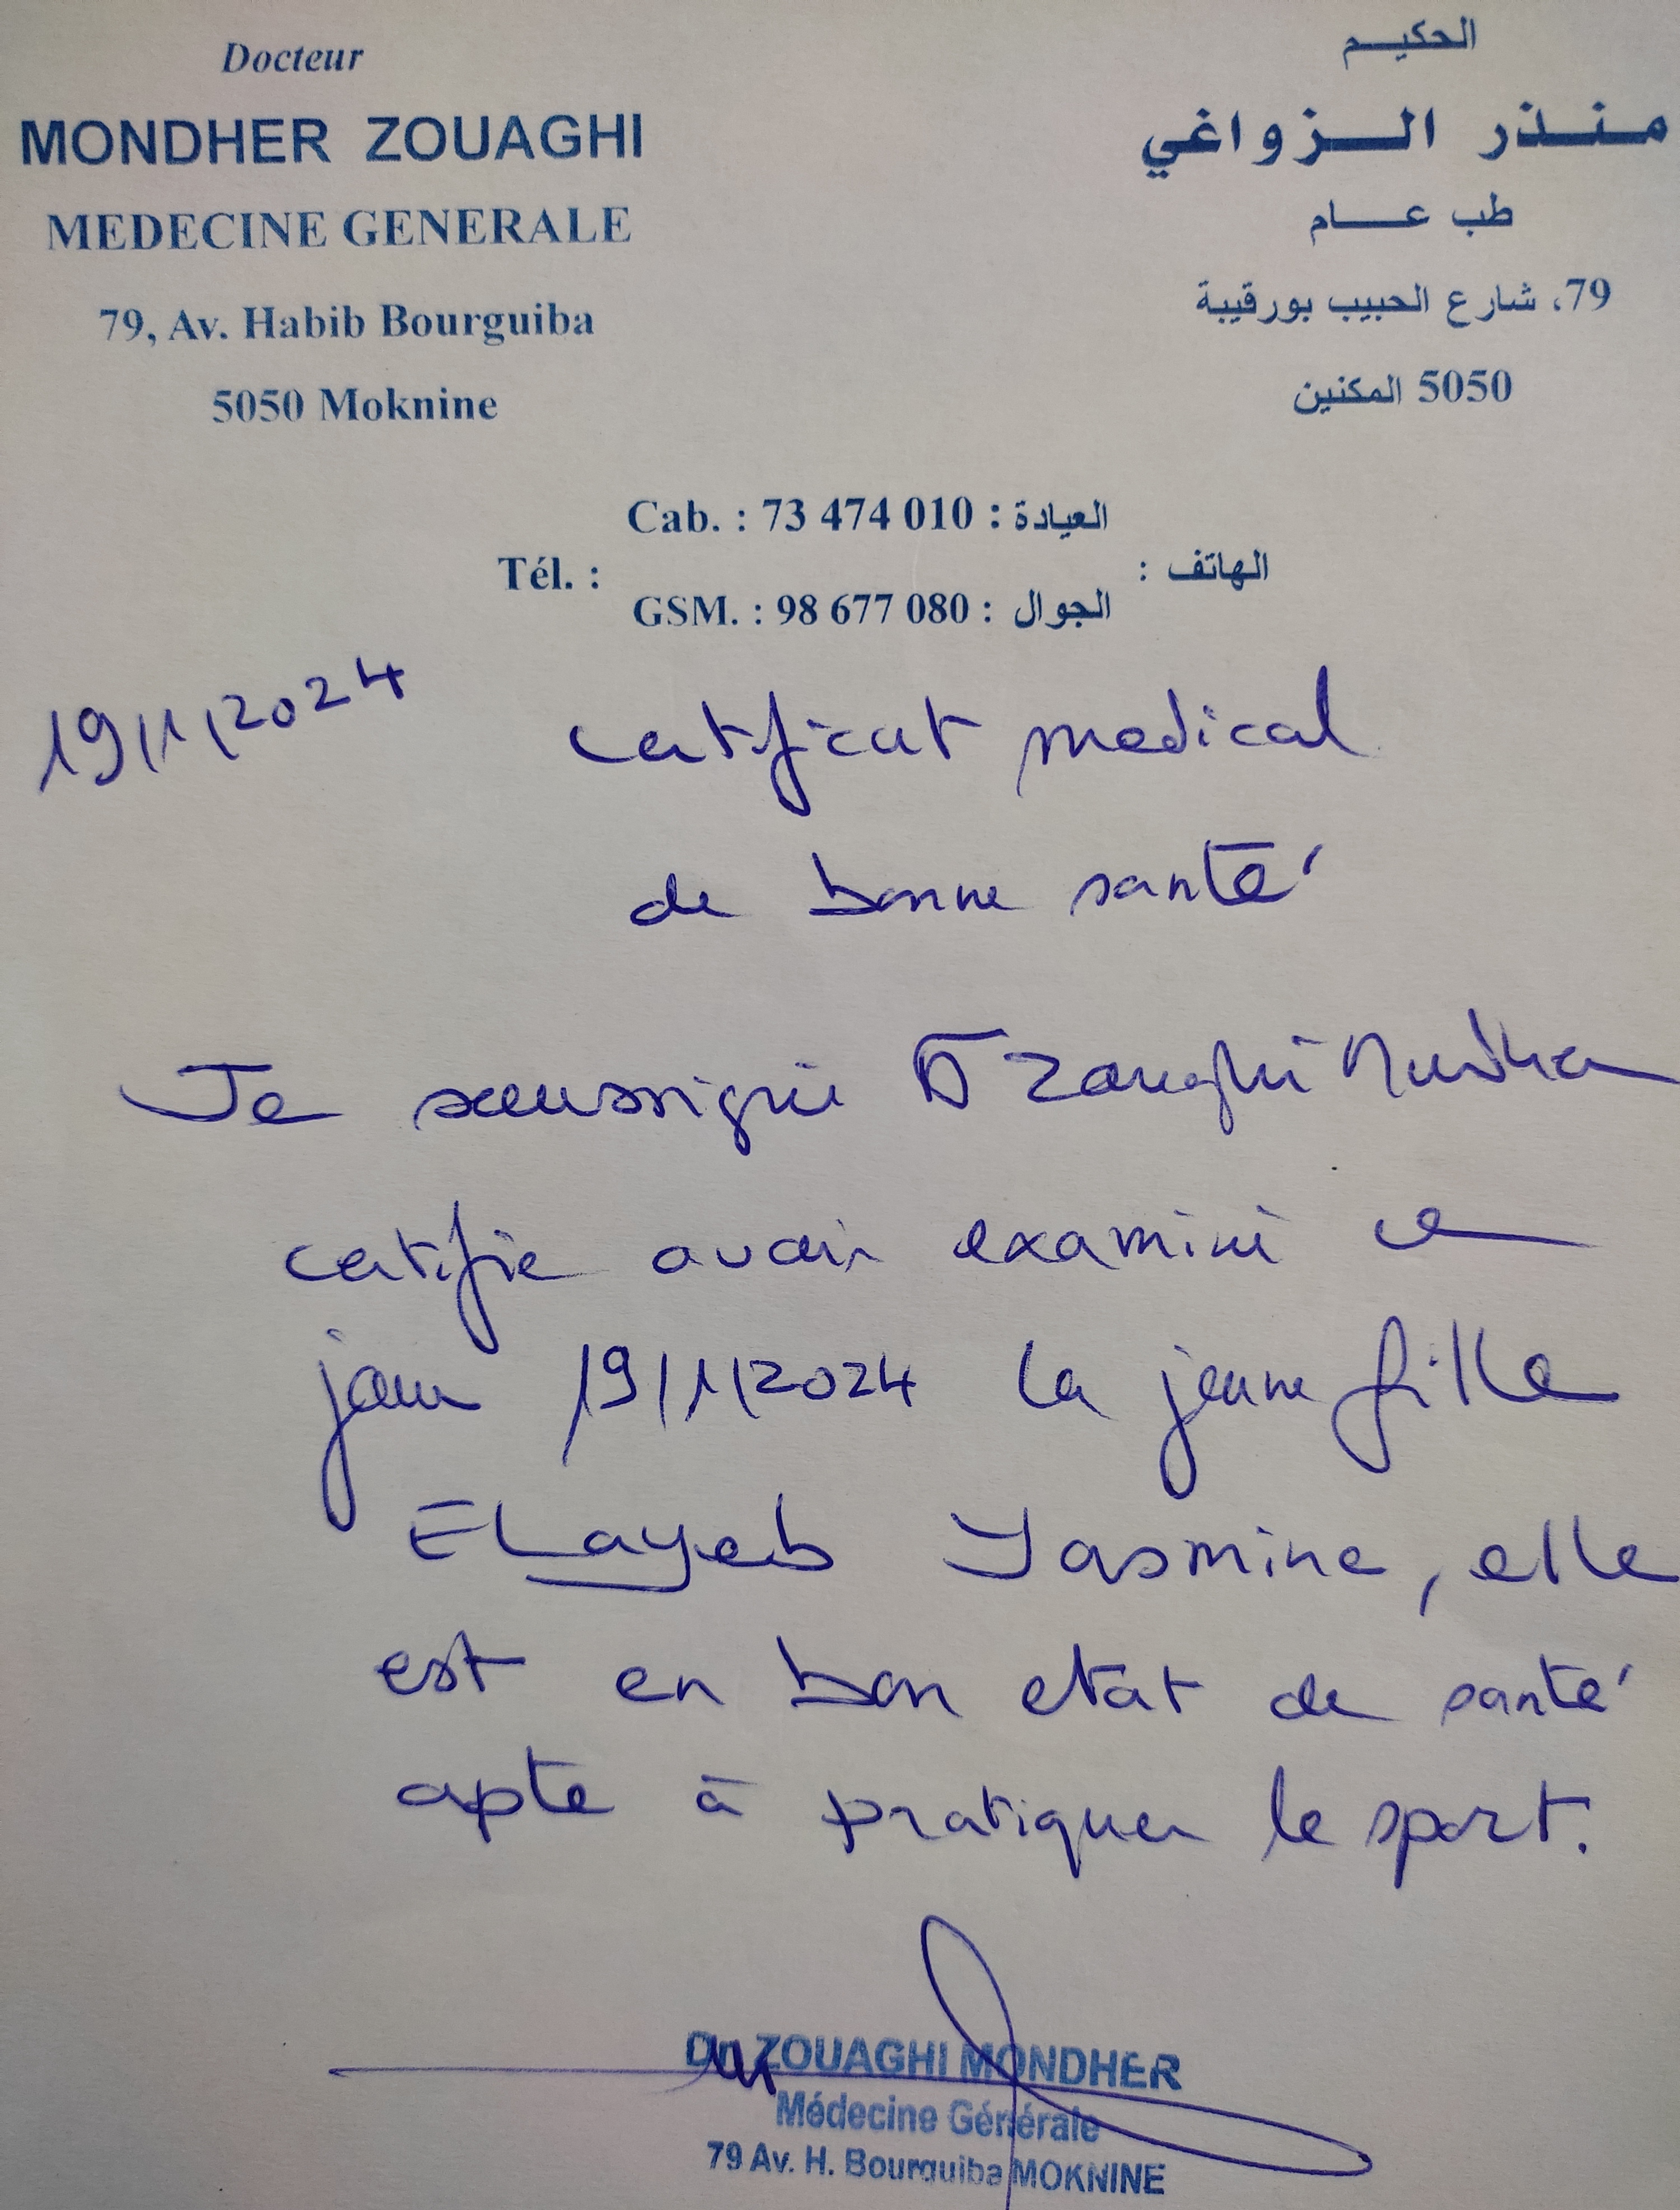 Docteur
MONDHER ZOUAGHI
MEDECINE GENERALE
79, Av. Habib Bourguiba
5050 Moknine
الحكيم
منذر الزواغي
طب عام
79، شارع الحبيب بورقيبة
5050 المكنين
Cab. : 73 474 010 : العيادة
Tél. : الهاتف :
GSM. : 98 677 080 : الجوال
19/1/2024
certificat medical
de bonne santé
Je soussigné Dr Zouaghi Mondher
certifie avoir examiné ce
jour 19/1/2024 la jeune fille
ELayeb Yasmine, elle
est en bon etat de santé
apte à pratiquer le sport.
Dr ZOUAGHI MONDHER
Médecine Générale
79 Av. H. Bourguiba MOKNINE